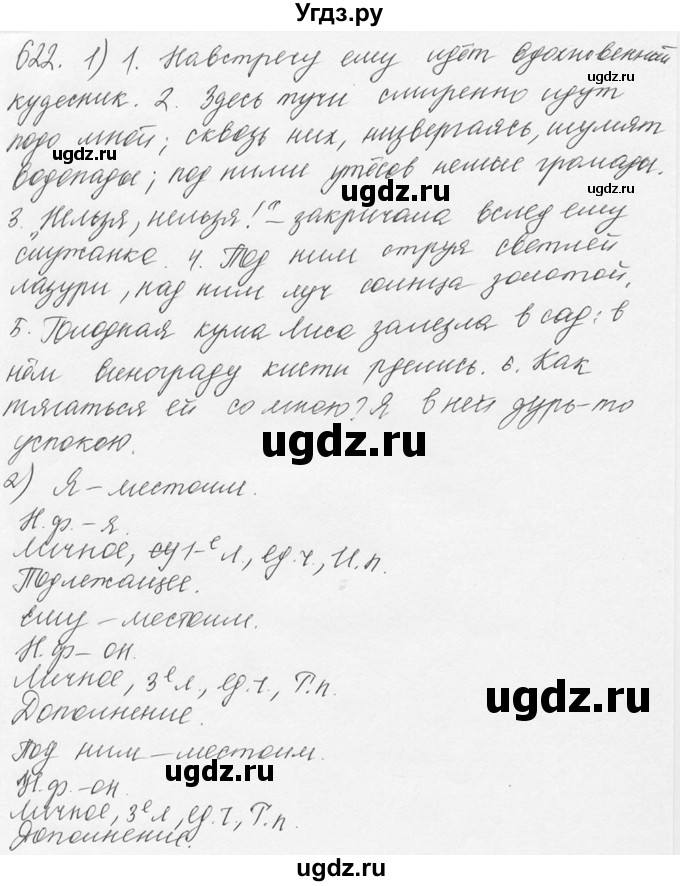 Угдз.ру
622. 1) 1. Навстречу ему идёт вдохновенный
ugdz.ru
кудесник. 2. Здесь тучи смиренно идут
ugdz.ru
подо мной; сквозь них, низвергаясь, шумят
ugdz.ru
водопады; под ними утёсов немые громады.
ugdz.ru
ugdz.ru
3. „Нельзя, нельзя!" – закричала вслед ему
служанка. 4. Под ним струя светлей
лазури, над ним луч солнца золотой.
5. Голодная кума Лиса залезла в сад: в
нём винограду кисти рделись. 6. Как
тягаться ей со мною? Я в ней дурь-то
успокою.
ugdz.ru
ugdz.ru
2) Я – местоим.
Н.ф. – я.
Личное, 1-е л, ед.ч., И.п.
ugdz.ru
Подлежащее.
ему – местоим.
Н.ф – он.
Личное, 3е л., ед.ч., Т.п.
ugdz.ru
Дополнение.
под ним – местоим.
ugdz.ru
Н.ф. – он.
Личное, 3е л, ед.ч, Т.п.
ugdz.ru
Дополнение.
ugdz.ru